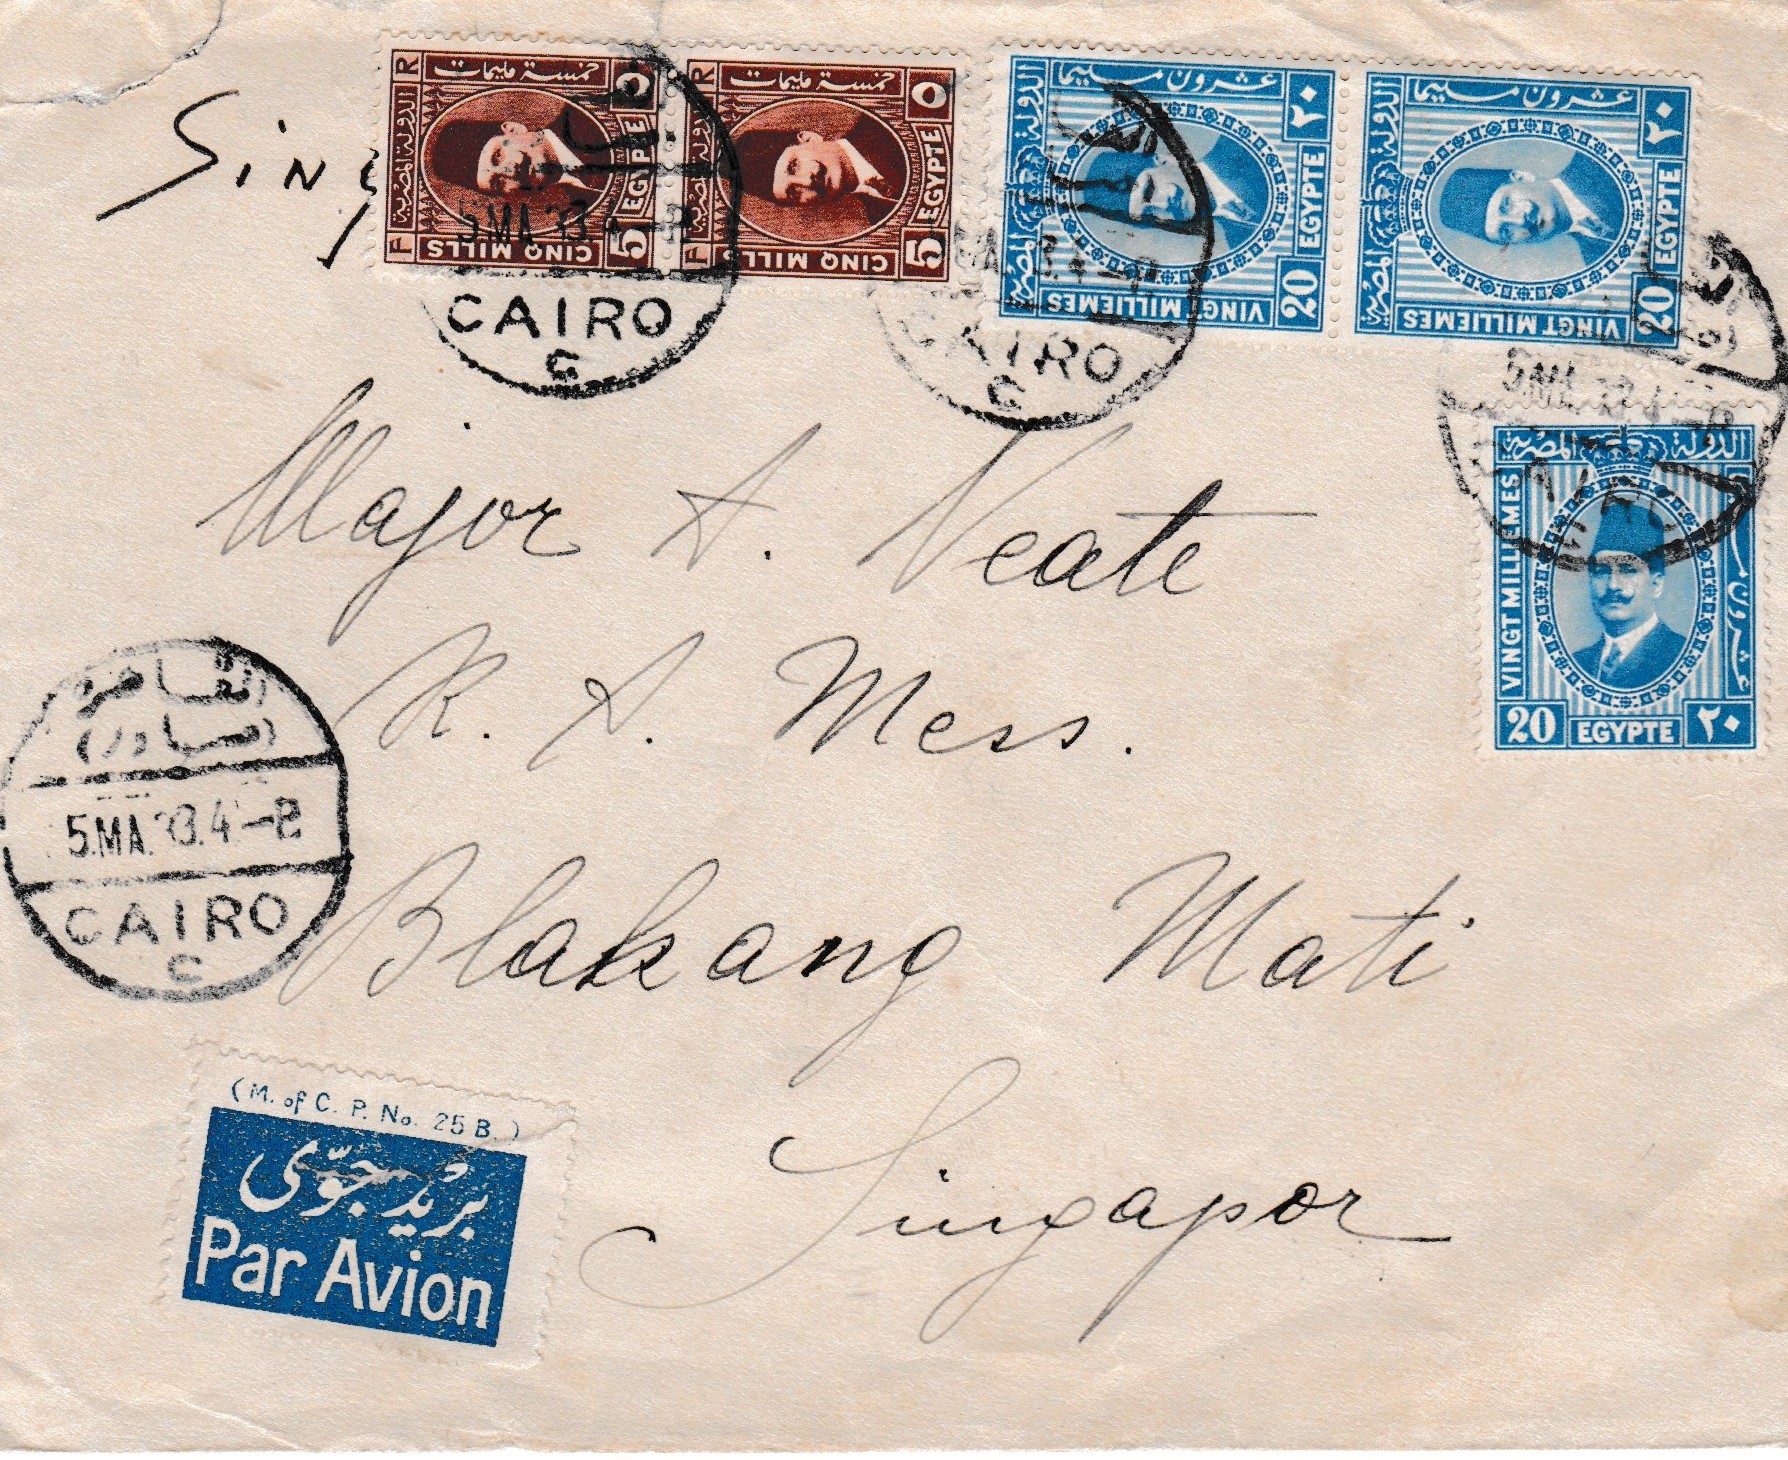 Sing
FR
الدولة المصرية
خمسة مليمات
٥
EGYPTE
5
CINQ MILLS
FR
الدولة المصرية
خمسة مليمات
٥
EGYPTE
5
CINQ MILLS
الدولة المصرية
عشرون مليما
٢٠
EGYPTE
20
VINGT MILLIEMES
الدولة المصرية
عشرون مليما
٢٠
EGYPTE
20
VINGT MILLIEMES
5 MA. 33. 4-P
CAIRO
C
CAIRO
C
5 MA
CAIRO
الدولة المصرية
VINGT MILLIEMES
عشرون مليما
20 EGYPTE ٢٠
Major A. Neate
R. A. Mess.
Blakang Mati
Singapor
القاهرة
(صادر)
5.MA. 33.4-P
CAIRO
C
(M. of C. P. No. 25 B.)
بريد جوّى
Par Avion